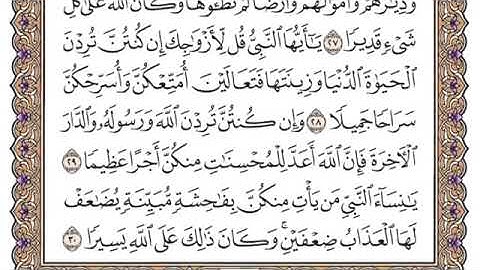 وَدِيَٰرَهُمْ وَأَمْوَٰلَهُمْ وَأَرْضًا لَّمْ تَطَـُٔوهَا وَكَانَ ٱللَّهُ عَلَىٰ كُلِّ
شَىْءٍ قَدِيرًا ٢٧ يَٰٓأَيُّهَا ٱلنَّبِىُّ قُل لِّأَزْوَٰجِكَ إِن كُنتُنَّ تُرِدْنَ
ٱلْحَيَوٰةَ ٱلدُّنْيَا وَزِينَتَهَا فَتَعَالَيْنَ أُمَتِّعْكُنَّ وَأُسَرِّحْكُنَّ
سَرَاحًا جَمِيلًا ٢٨ وَإِن كُنتُنَّ تُرِدْنَ ٱللَّهَ وَرَسُولَهُۥ وَٱلدَّارَ
ٱلْءَاخِرَةَ فَإِنَّ ٱللَّهَ أَعَدَّ لِلْمُحْسِنَٰتِ مِنكُنَّ أَجْرًا عَظِيمًا ٢٩
يَٰنِسَآءَ ٱلنَّبِىِّ مَن يَأْتِ مِنكُنَّ بِفَٰحِشَةٍ مُّبَيِّنَةٍ يُضَٰعَفْ
لَهَا ٱلْعَذَابُ ضِعْفَيْنِ ۚ وَكَانَ ذَٰلِكَ عَلَى ٱللَّهِ يَسِيرًا ٣٠